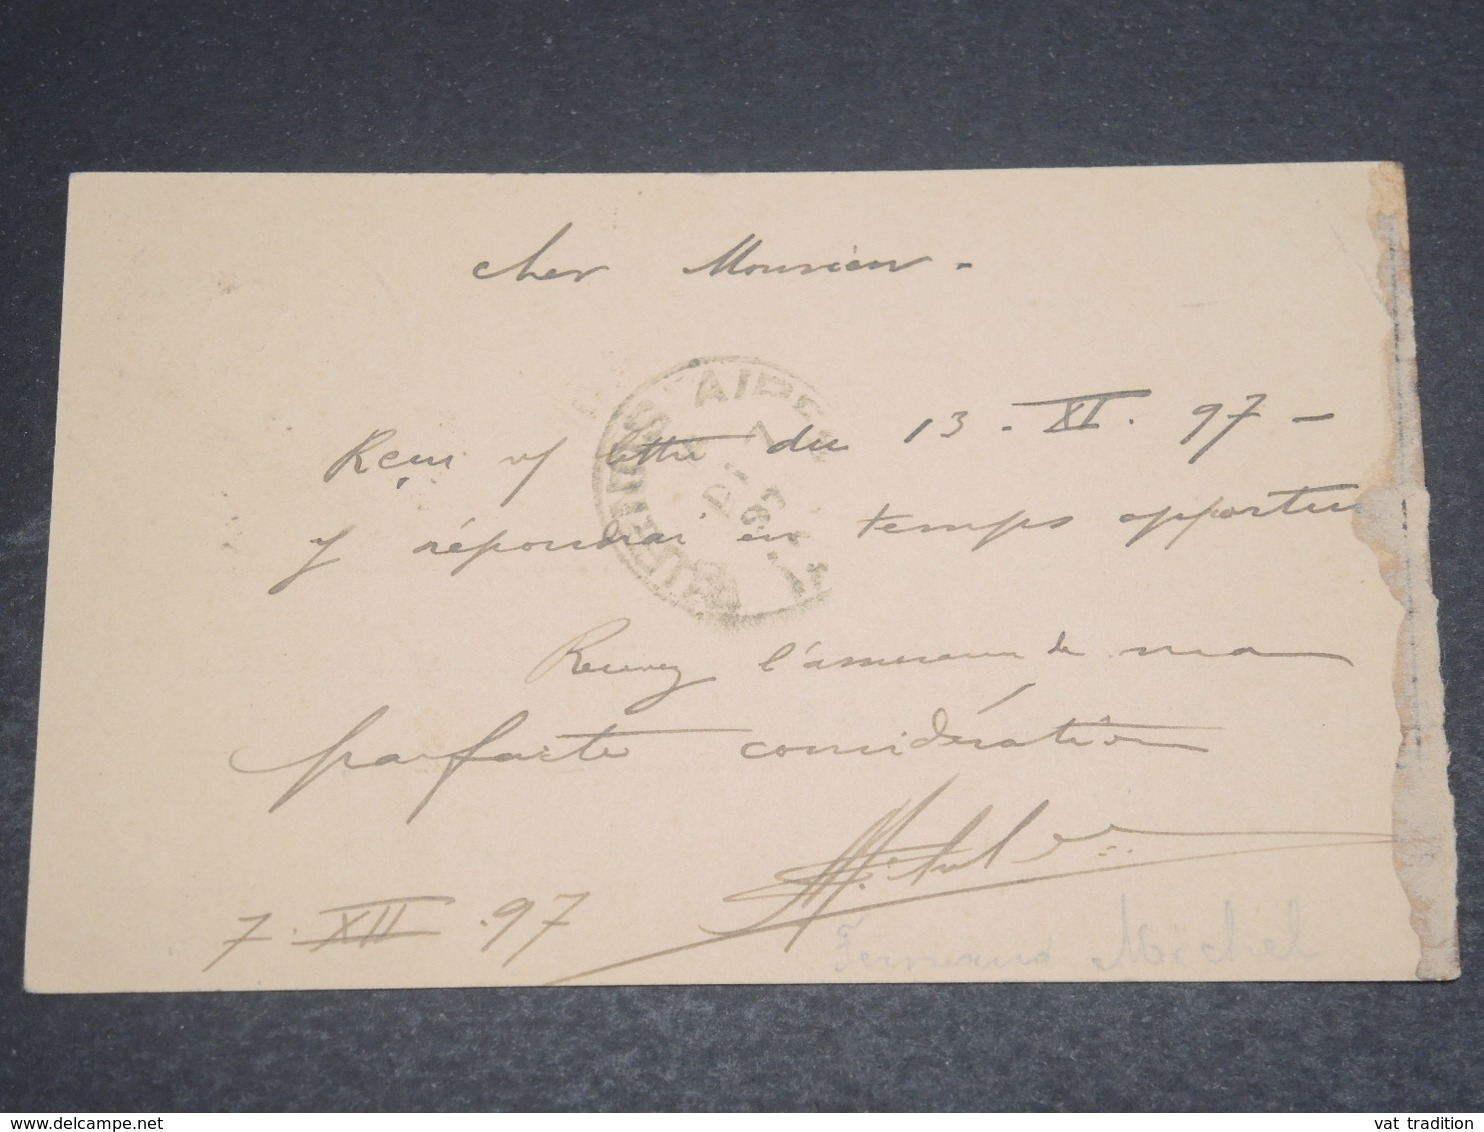 Cher Monsieur -
Reçu v/ lettre du 13. XI. 97 -
y répondrai en temps opportun
BUENOS AIRES
Recevez l'assurance de ma
parfaite considération
7. XII. 97
Fernand Michel
delcampe.net
vat tradition